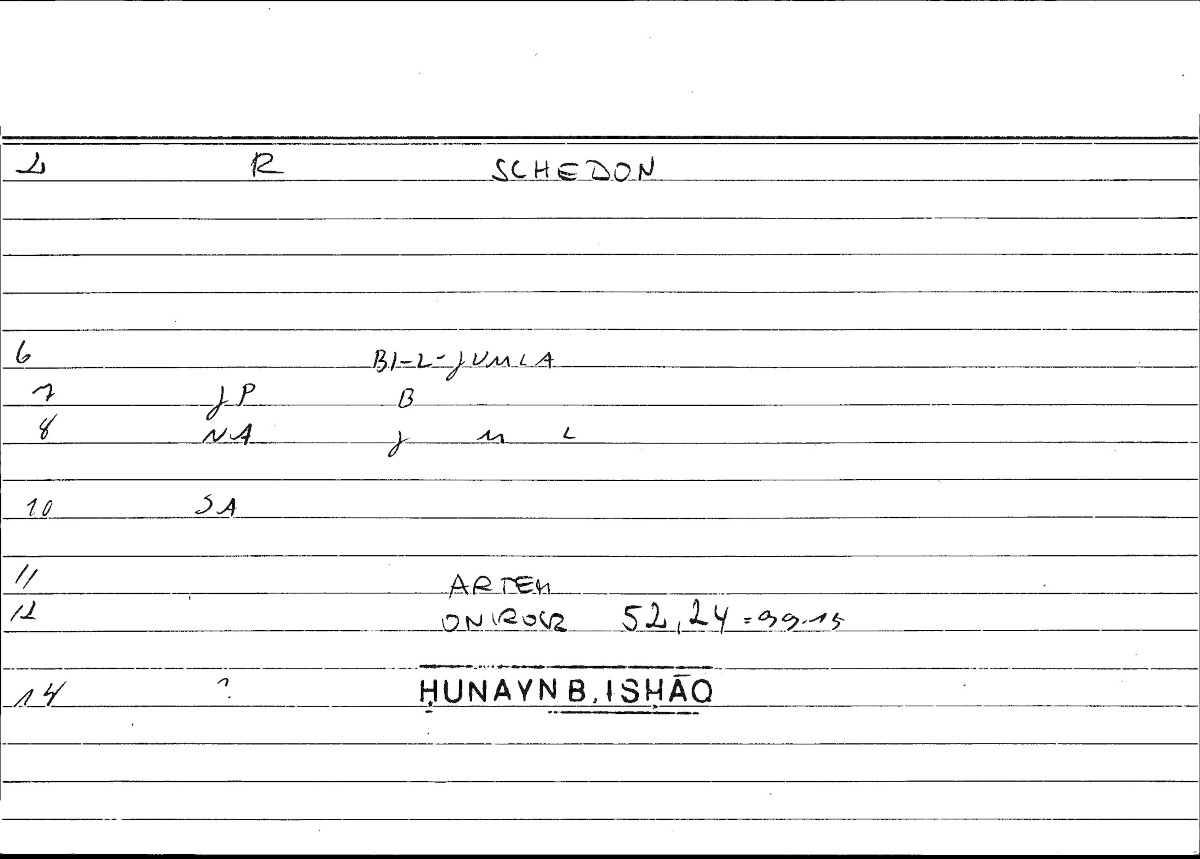 2 R SCHEDON
6 BI-L-JUMLA
7 JP B
8 NA J M L
10 SA
11 ARTEM
12 ONIROCR 52,24 = 99.15
14 ? ḤUNAYN B. ISḤĀQ